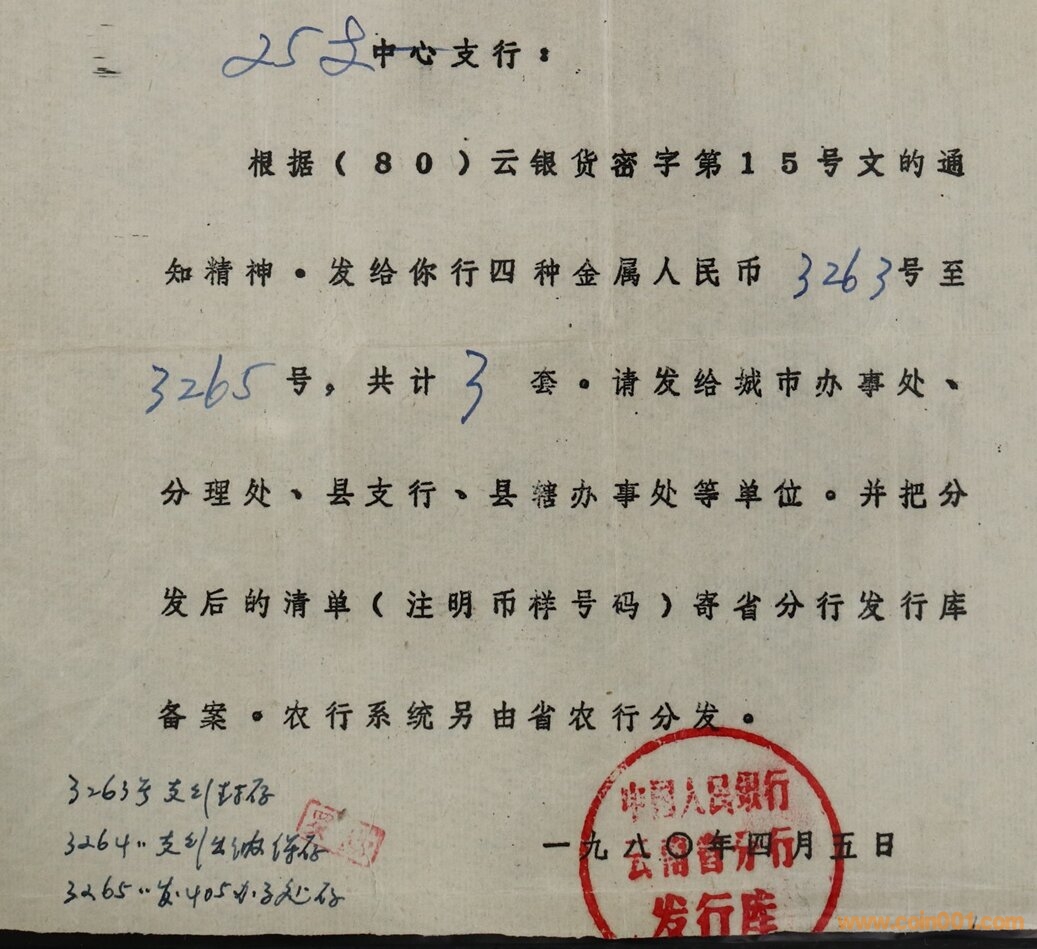 25支中心支行：
根据（80）云银货密字第15号文的通
知精神。发给你行四种金属人民币 3263号至
3265号，共计3套。请发给城市办事处、
分理处、县支行、县辖办事处等单位。并把分
发后的清单（注明币样号码）寄省分行发行库
备案。农行系统另由省农行分发。
中国人民银行
云南省分行
发行库
一九八〇年四月五日
3263号支行封存
3264〃支行出纳保存
3265〃发405办事处存
www.coin001.com